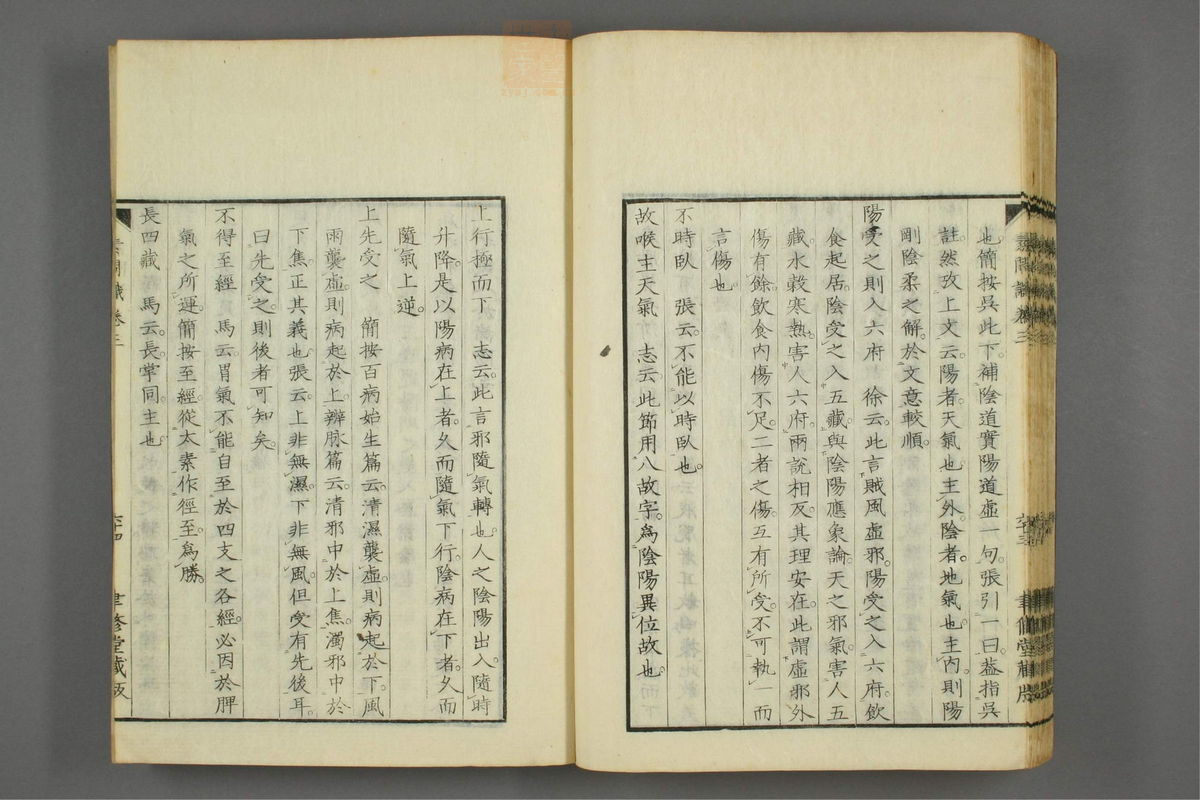 也簡按吳此下補陰道實陽道虛一句張引一曰蓋指吳
註然攷上文云陽者天氣也主外陰者地氣也主內則陽
剛陰柔之解於文意較順
陽受之則入六府 徐云此言賊風虛邪陽受之入六府飲
食起居陰受之入五藏與陰陽應象論天之邪氣害人五
藏水穀寒熱害人六府兩說相反其理安在此謂虛邪外
傷有餘飲食內傷不足二者之傷互有所受不可執一而
言傷也
不時臥 張云不能以時臥也
故喉主天氣 志云此節用八故字為陰陽異位故也
上行極而下 志云此言邪隨氣轉也人之陰陽出入隨時
升降是以陽病在上者久而隨氣下行陰病在下者久而
隨氣上逆
上先受之 簡按百病始生篇云清濕襲虛則病起於下風
雨襲虛則病起於上辨脉篇云清邪中於上焦濁邪中於
下焦正其義也張云上非無濕下非無風但受有先後耳
曰先受之則後者可知矣
不得至經 馬云胃氣不能自至於四支之各經必因於脾
氣之所運簡按至經從太素作徑至為勝
長四藏 馬云長掌同主也
素問識卷三 六十四 聿修堂藏版